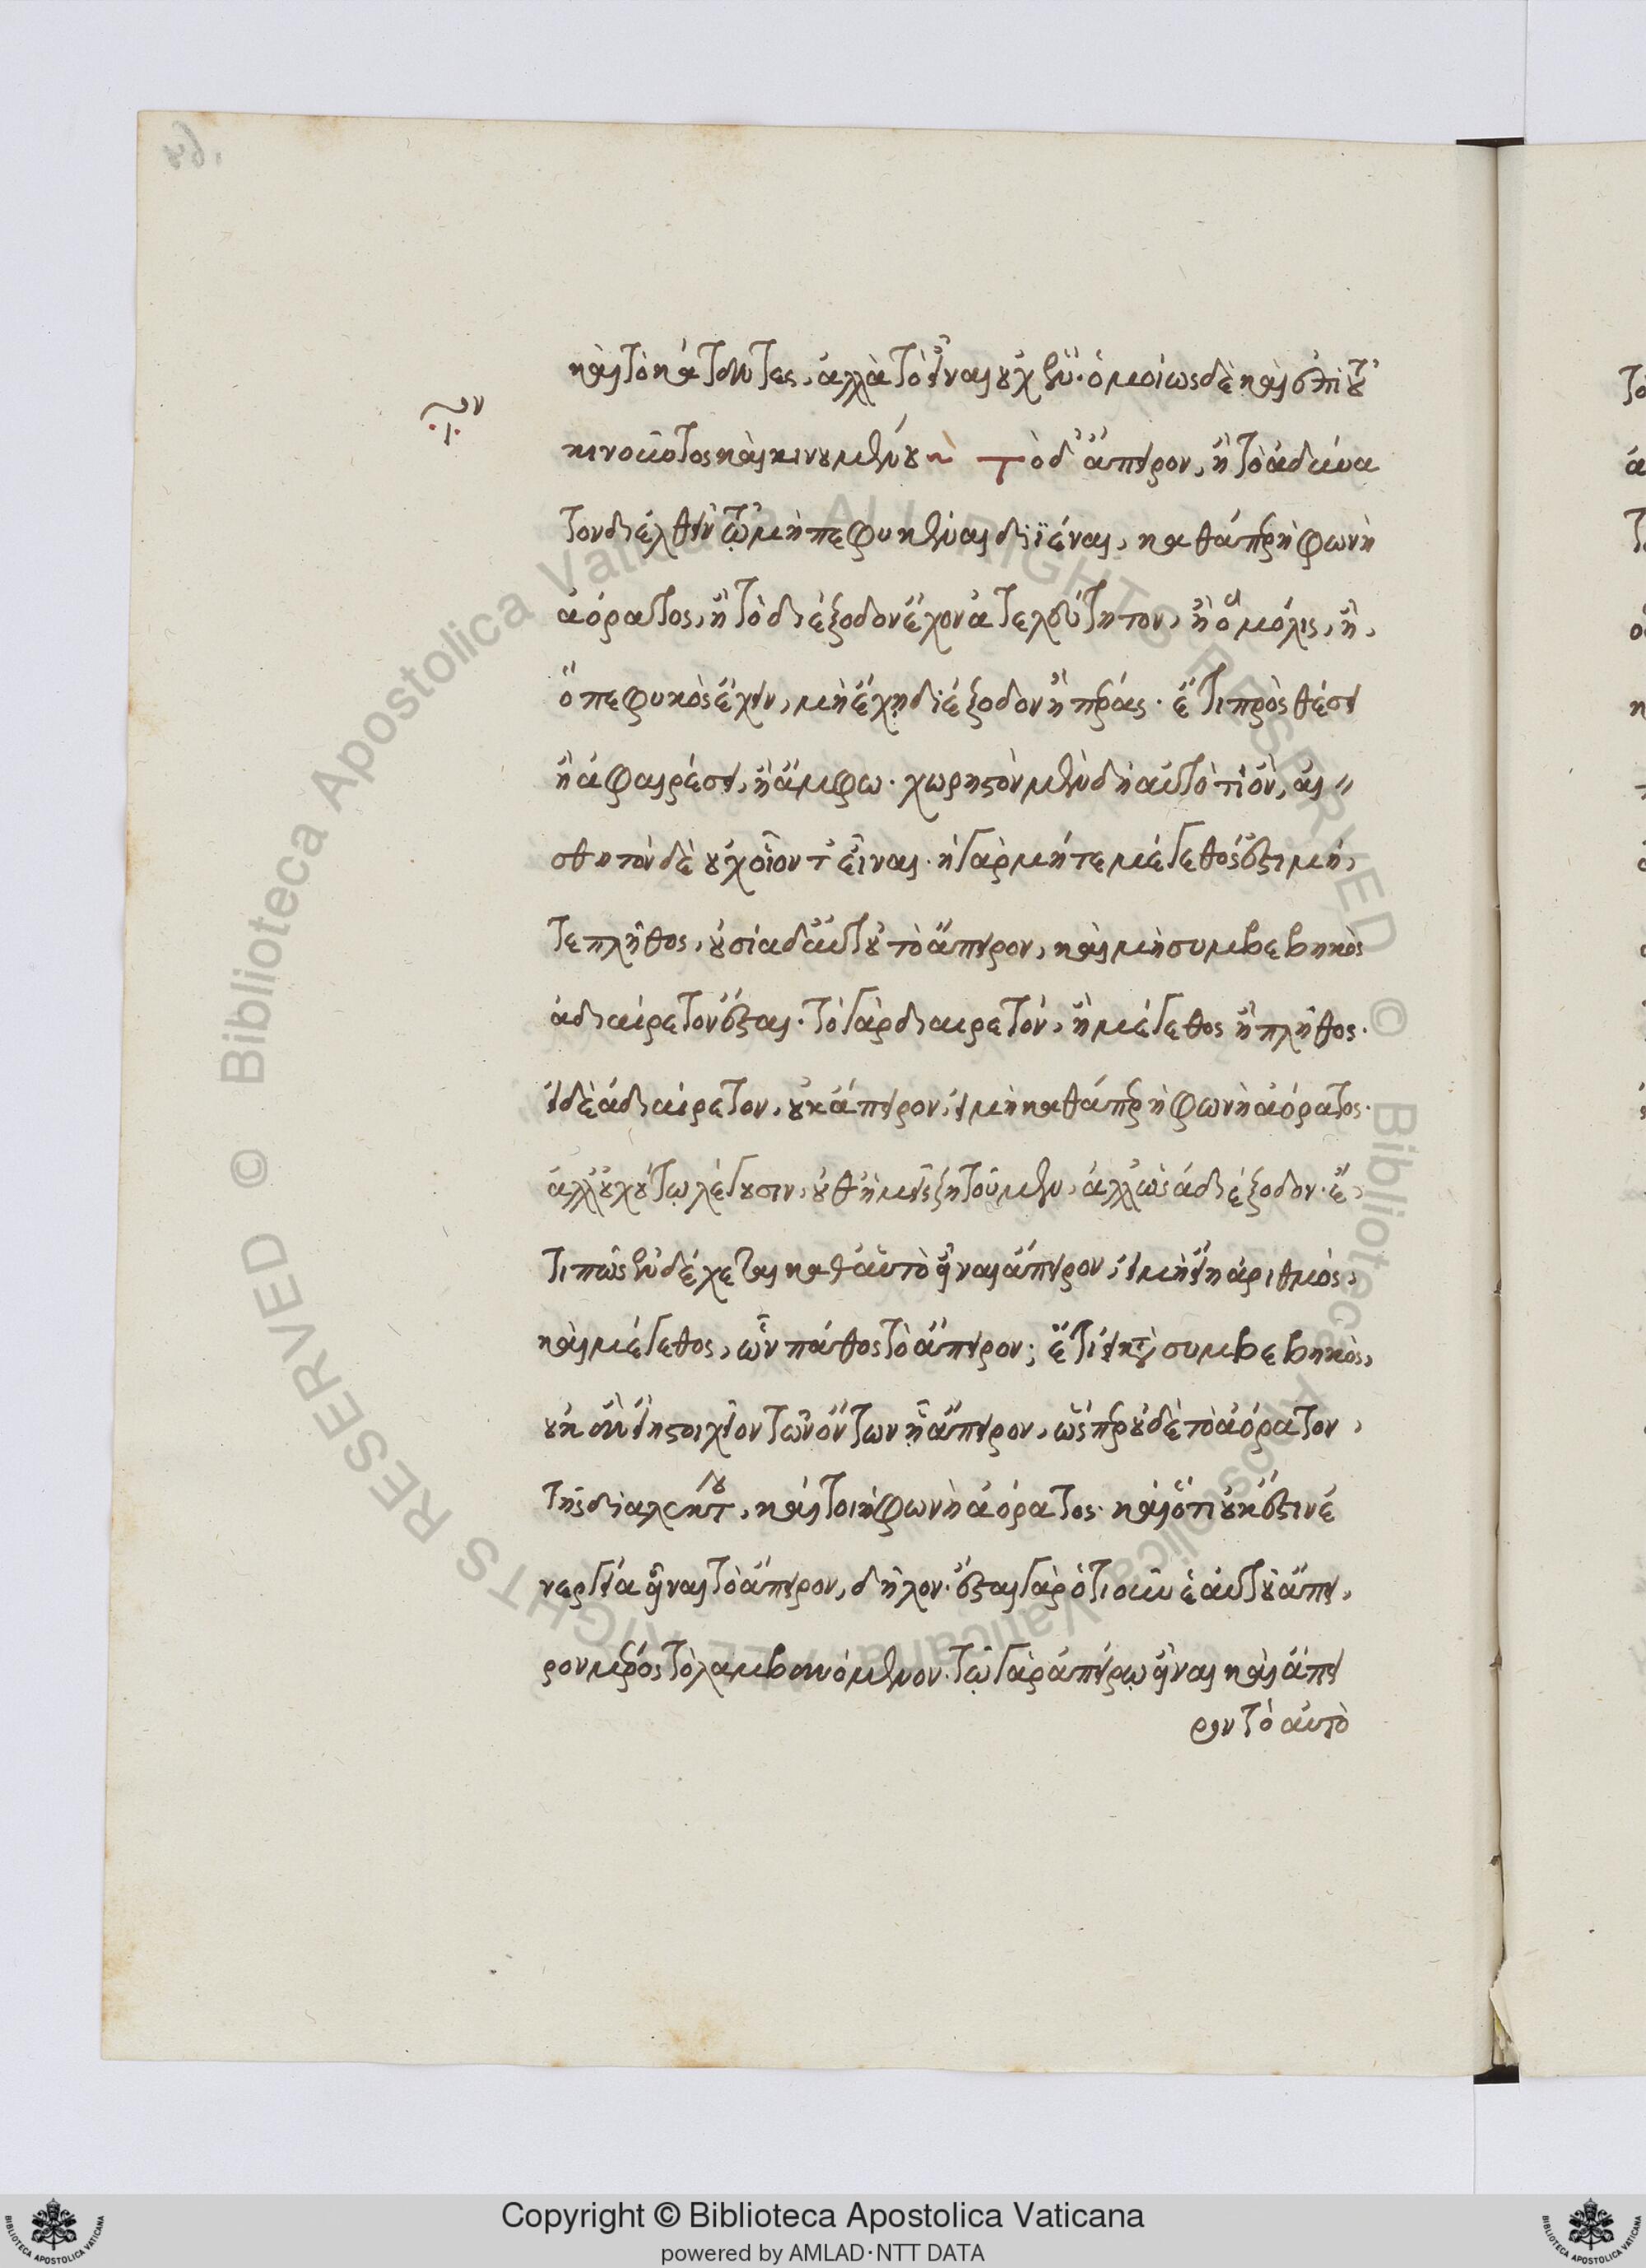 καὶ τὸ κάταντες, ἀλλὰ τὸ εἶναι οὐχ ἕν· ὁμοίως δὲ καὶ ἐπὶ τοῦ
κινοῦντος καὶ κινουμένου ~ Τὸ δ' ἄπειρον, ἢ τὸ ἀδύνα
τον διελθεῖν τῷ μὴ πεφυκέναι διϊέναι, καθάπερ ἡ φωνὴ
ἀόρατος, ἢ τὸ διέξοδον ἔχον ἀτελεύτητον, ἢ ὃ μόλις, ἢ,
ὃ πεφυκὸς ἔχειν, μὴ ἔχῃ διέξοδον ἢ πέρας· ἔτι προσθέσει
ἢ ἀφαιρέσει, ἢ ἄμφω· χωριστὸν μὲν δὴ αὐτό τι ὂν, αἰ
σθητὸν δὲ οὐχ οἷόν τ' εἶναι· εἰ γὰρ μήτε μέγεθός ἐστι μή,
τε πλῆθος, οὐσία δ' αὐτοῦ τὸ ἄπειρον, καὶ μὴ συμβεβηκὸς
ἀδιαίρετον ἔσται· τὸ γὰρ διαιρετόν, ἢ μέγεθος ἢ πλῆθος·
εἰ δὲ ἀδιαίρετον, οὐκ ἄπειρον, εἰ μὴ καθάπερ ἡ φωνὴ ἀόρατος·
ἀλλ' οὐχ οὕτω λέγουσιν, οὐθ' ἡμεῖς ζητοῦμεν, ἀλλ' ὡς ἀδιέξοδον· ἔ,
τι πῶς ἐνδέχεται καθ' αὑτὸ εἶναι ἄπειρον, εἰ μὴ εἴη ἀριθμὸς,
καὶ μέγεθος, ὧν πάθος τὸ ἄπειρον; ἔτι εἰ κατὰ συμβεβηκὸς,
οὐκ ἂν εἴη στοιχεῖον τῶν ὄντων ᾗ ἄπειρον, ὥσπερ οὐδὲ τὸ ἀόρατον,
τῆς διαλέκτου, καίτοι ἡ φωνὴ ἀόρατος· καὶ ὅτι οὐκ ἔστιν ἐ
νεργείᾳ εἶναι τὸ ἄπειρον, δῆλον· ἔσται γὰρ ὁτιοῦν ἑαυτοῦ ἄπει,
ρον μέρος τὸ λαμβανόμενον· τῷ γὰρ ἀπείρῳ εἶναι καὶ ἄπει
ρον τὸ αὐτὸ